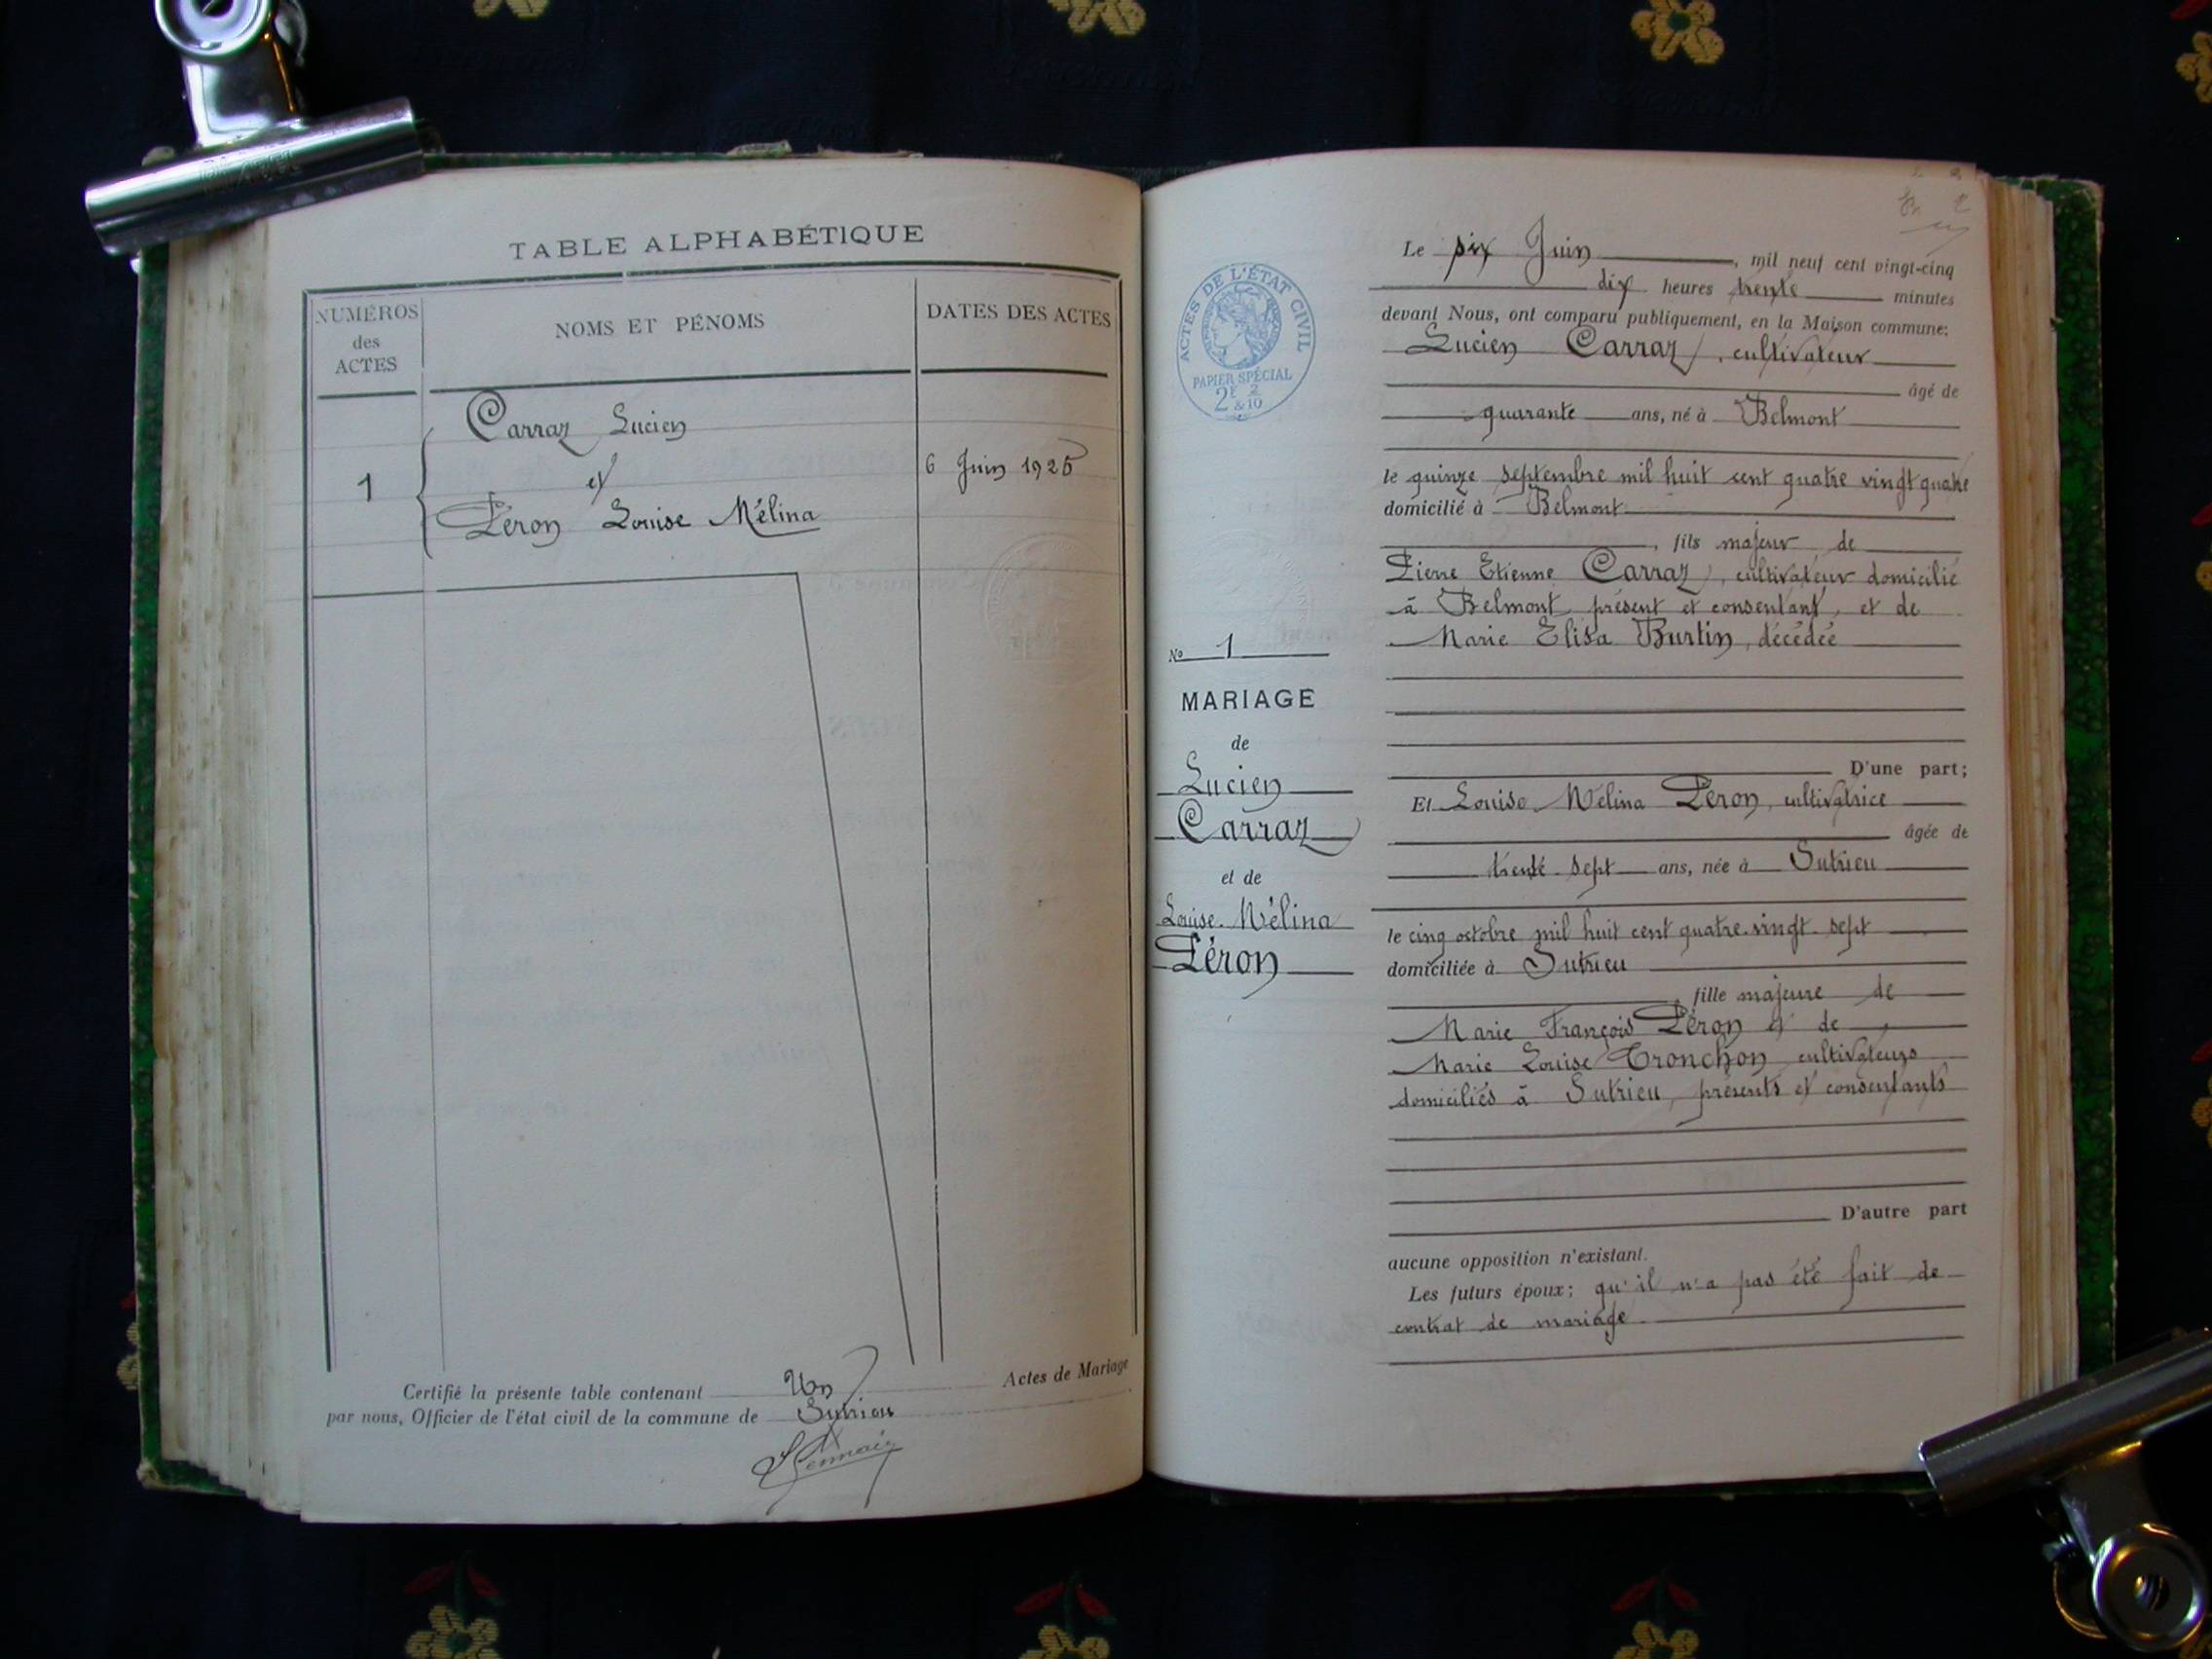 TABLE ALPHABÉTIQUE
NUMÉROS
des
ACTES
NOMS ET PÉNOMS
DATES DES ACTES
Carraz Lucien
1
et
6 Juin 1925
Péron Louise Mélina
Certifié la présente table contenant Un Actes de Mariage
par nous, Officier de l'état civil de la commune de Sutrieu
ACTES DE L'ÉTAT CIVIL
PAPIER SPÉCIAL
2F 2
&10
No 1
MARIAGE
de
Lucien
Carraz
et de
Louise Mélina
Péron
Le six Juin, mil neuf cent vingt-cinq
dix heures trente minutes
devant Nous, ont comparu publiquement, en la Maison commune:
Lucien Carraz, cultivateur
âgé de
quarante ans, né à Belmont
le quinze septembre mil huit cent quatre vingt quatre
domicilié à Belmont
, fils majeur de
Pierre Etienne Carraz, cultivateur domicilié
à Belmont, présent et consentant, et de
Marie Elisa Burtin, décédée
D'une part;
Et Louise Mélina Péron, cultivatrice
âgée de
trente-sept ans, née à Sutrieu
le cinq octobre mil huit cent quatre-vingt-sept
domiciliée à Sutrieu
, fille majeure de
Marie François Péron et de
Marie Louise Tronchon, cultivateurs
domiciliés à Sutrieu, présents et consentants
D'autre part
aucune opposition n'existant.
Les futurs époux; qu'il n'a pas été fait de
contrat de mariage